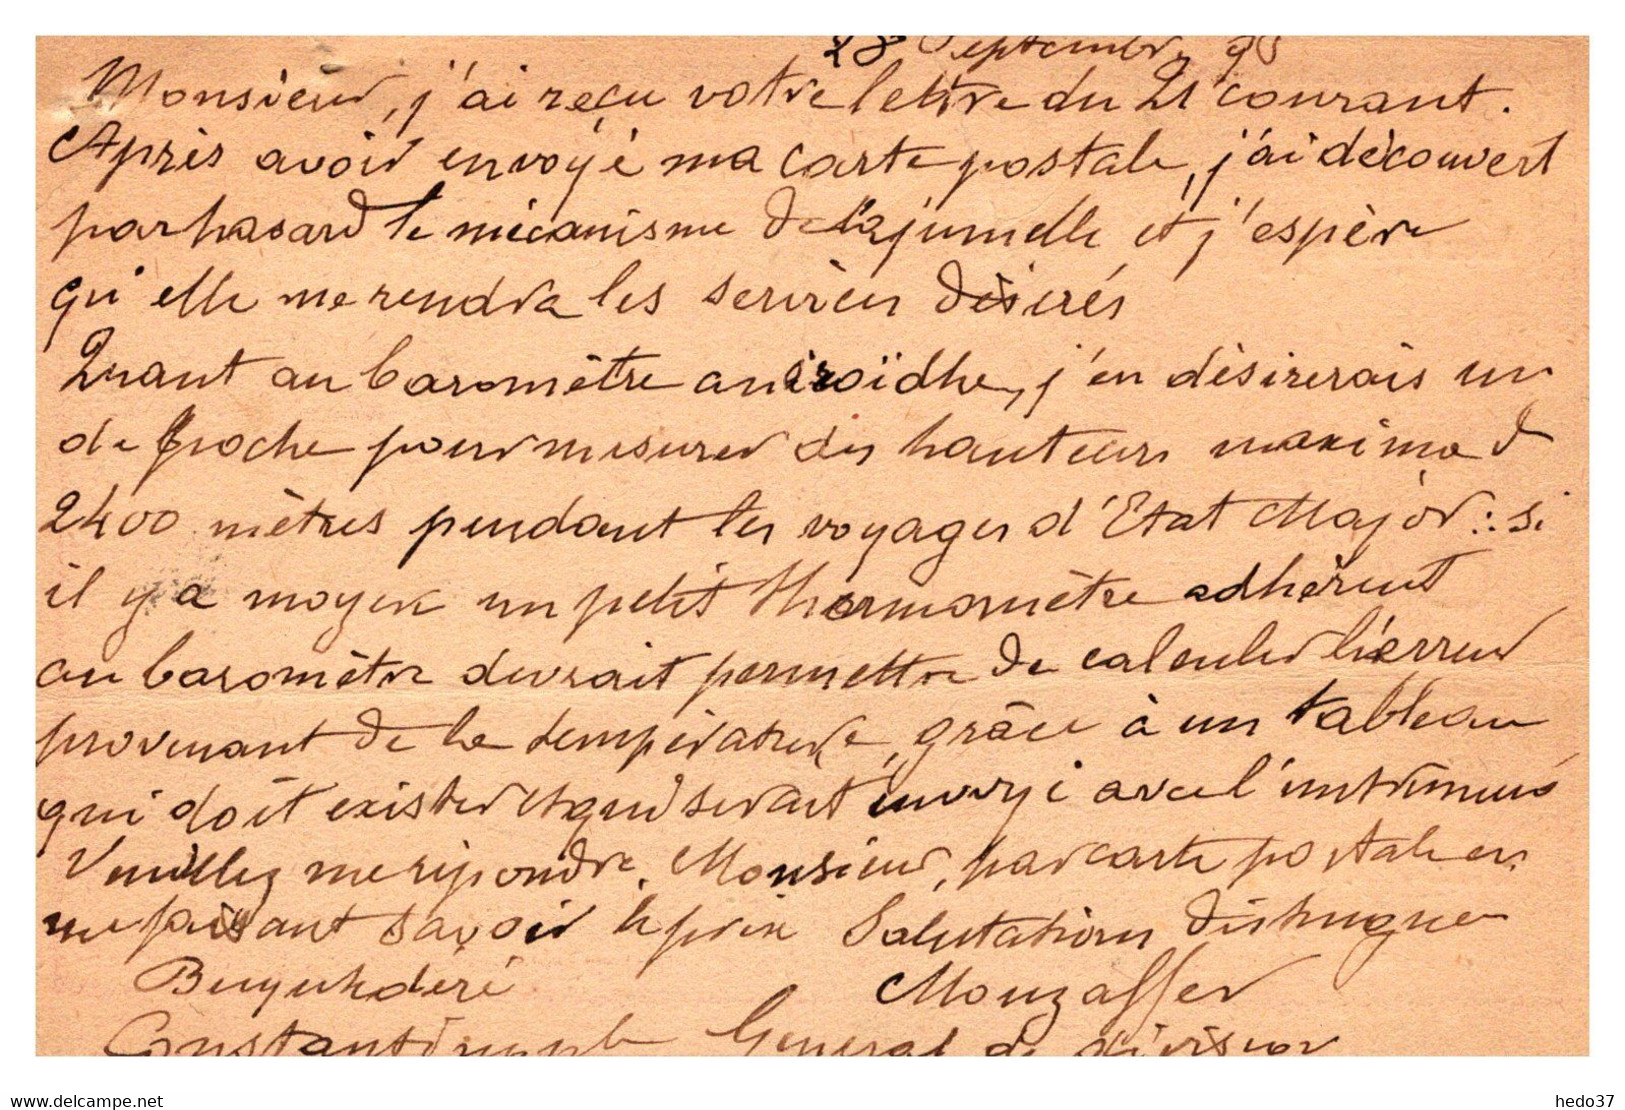 28 Septembre 98
Monsieur, j'ai reçu votre lettre du 21 courant.
Après avoir envoyé ma carte postale, j'ai découvert
par hasard le mécanisme de la jumelle et j'espère
qu'elle me rendra les services désirés
Quant au baromètre anéroïdhe, j'en désirerais un
de poche pour mesurer des hauteurs maxima de
2400 mètres pendant les voyages d'Etat Major : si
il y a moyen un petit thermomètre adhérent
au baromètre devrait permettre de calculer l'erreur
provenant de la température, grâce à un tableau
qui doit exister et qui serait envoyé avec l'instrument
Veuillez me répondre, Monsieur, par carte postale en
me faisant savoir le prix Salutations distingués
Buyukdéré Mouzaffer
Constantinople General de division
www.delcampe.net hedo37